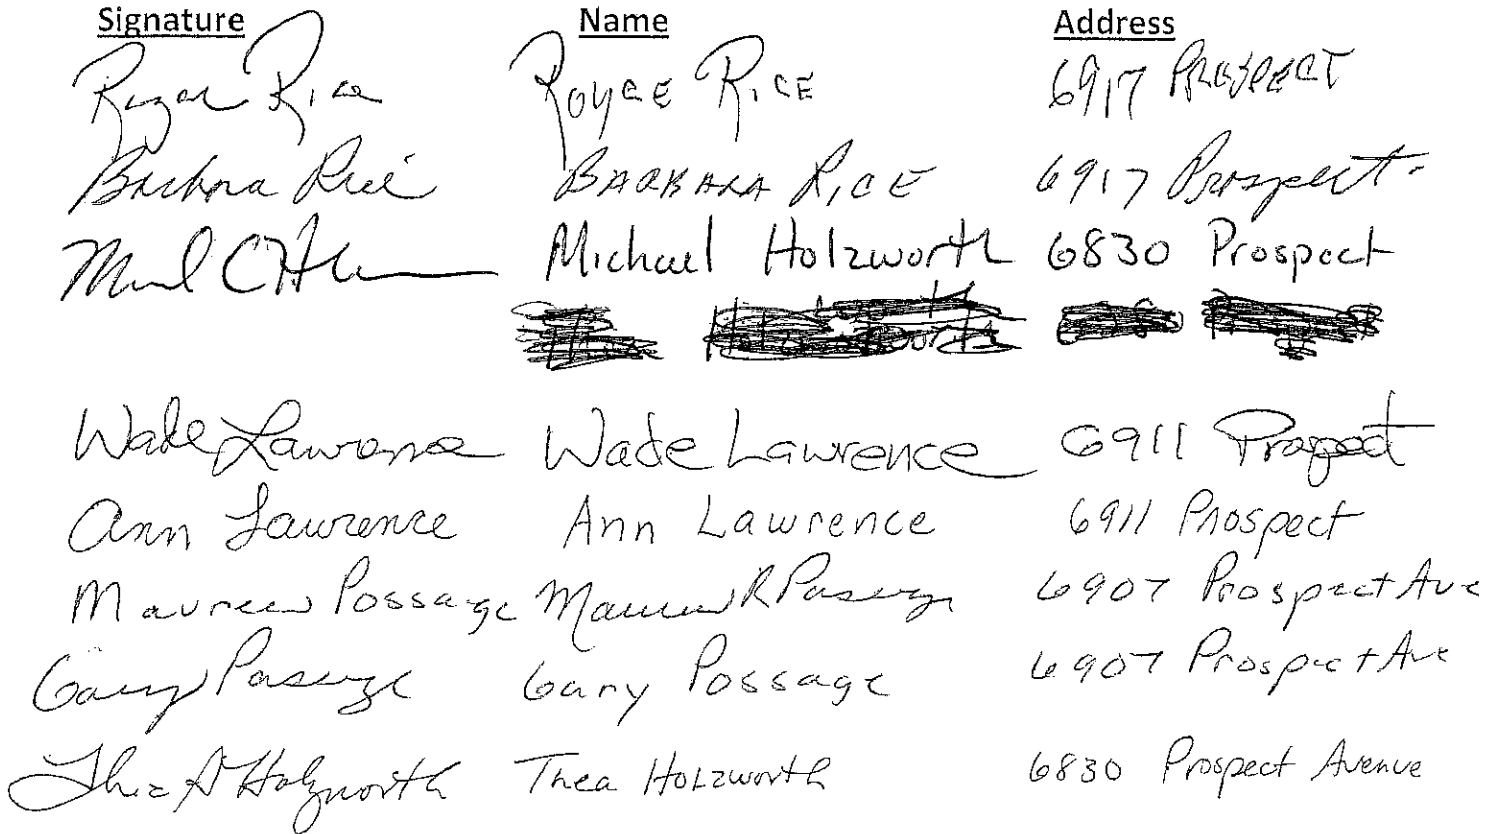 Signature Name Address
Royce Rice ROYCE RICE 6917 PROSPECT
Barbara Rice BARBARA RICE 6917 Prospect
Michael Holzworth 6830 Prospect
Wade Lawrence Wade Lawrence 6911 Prospect
Ann Lawrence Ann Lawrence 6911 Prospect
Maureen Possage Maureen R Possage 6907 Prospect Ave
Gary Possage Gary Possage 6907 Prospect Ave
Thea A Holzworth Thea Holzworth 6830 Prospect Avenue